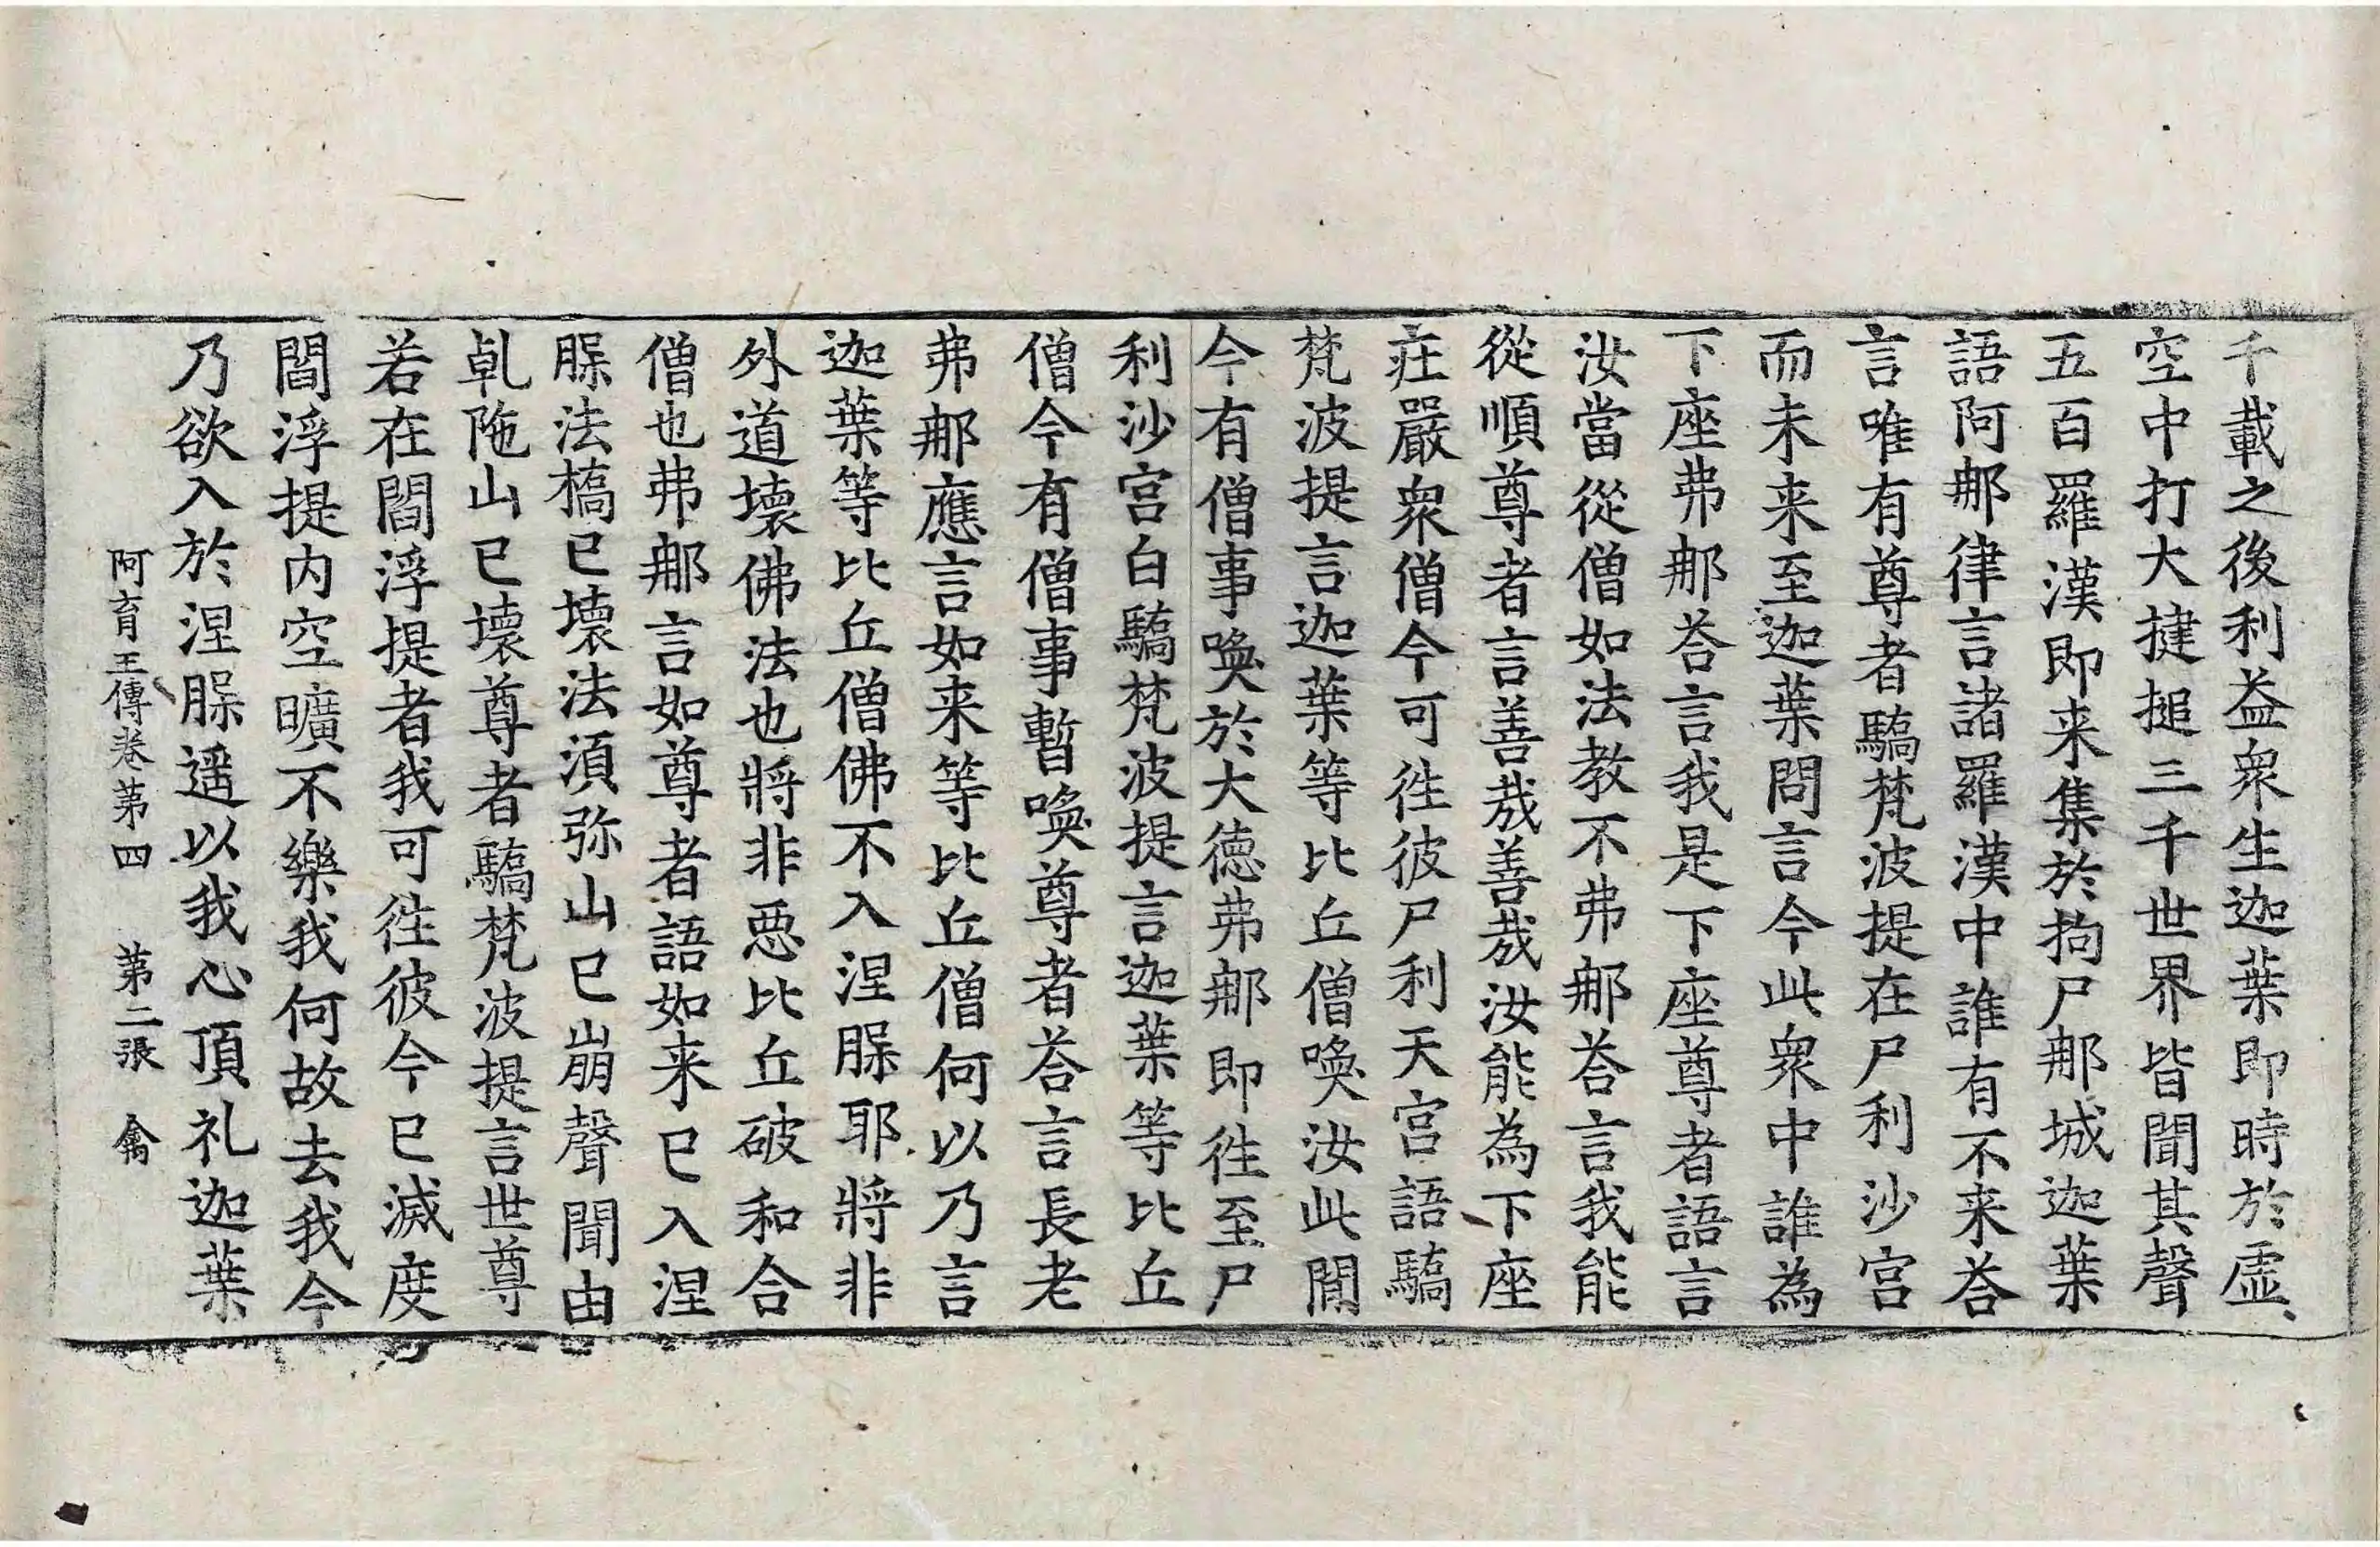 千載之後利益衆生迦葉即時於虛
空中打大揵搥三千世界皆聞其聲
五百羅漢即来集於拘尸那城迦葉
語阿那律言諸羅漢中誰有不来荅
言唯有尊者驕梵波提在尸利沙宮
而未来至迦葉問言今此衆中誰為
下座弗那荅言我是下座尊者語言
汝當從僧如法教不弗那荅言我能
從順尊者言善哉善哉汝能為下座
莊嚴衆僧今可徃彼尸利天宮語驕
梵波提言迦葉等比丘僧喚汝此閒
今有僧事喚於大德弗那即徃至尸
利沙宮白驕梵波提言迦葉等比丘
僧今有僧事暫喚尊者荅言長老
弗那應言如来等比丘僧何以乃言
迦葉等比丘僧佛不入涅腜耶將非
外道壞佛法也將非惡比丘破和合
僧也弗那言如尊者語如来已入涅
腜法橋已壞法湏弥山已崩聲聞由
乹陁山已壞尊者驕梵波提言世尊
若在閻浮提者我可徃彼今已滅度
閻浮提内空曠不樂我何故去我今
乃欲入於涅腜遥以我心頂礼迦葉
阿育王傳卷第四　第二張　禽